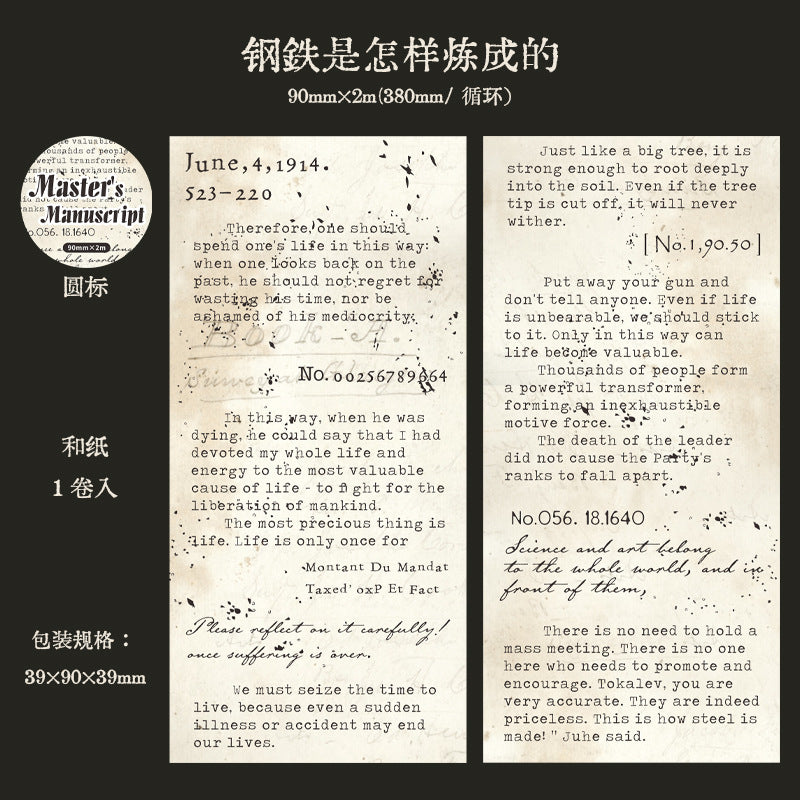 钢鉄是怎样炼成的
90mm×2m(380mm/ 循环)
Master's
Manuscript
No.056. 18.1640
90mm×2m
圆标
和纸
1 卷入
包装规格：
39×90×39mm
June,4,1914.
523-220
Therefore, one should
spend one's life in this way:
when one looks back on the
past, he should not regret for
wasting his time, nor be
ashamed of his mediocrity.
No.00256789664
In this way, when he was
dying, he could say that I had
devoted my whole life and
energy to the most valuable
cause of life - to fight for the
liberation of mankind.
The most precious thing is
life. Life is only once for
Montant Du Mandat
Taxed' oxP Et Fact
Please reflect on it carefully!
once suffering is over.
We must seize the time to
live, because even a sudden
illness or accident may end
our lives.
Just like a big tree, it is
strong enough to root deeply
into the soil. Even if the tree
tip is cut off, it will never
wither.
[ No.1,90.50 ]
Put away your gun and
don't tell anyone. Even if life
is unbearable, we should stick
to it. Only in this way can
life become valuable.
Thousands of people form
a powerful transformer,
forming an inexhaustible
motive force.
The death of the leader
did not cause the Party's
ranks to fall apart.
No.056. 18.1640
Science and art belong
to the whole world, and in
front of them,
There is no need to hold a
mass meeting. There is no one
here who needs to promote and
encourage. Tokalev, you are
very accurate. They are indeed
priceless. This is how steel is
made! " Juhe said.